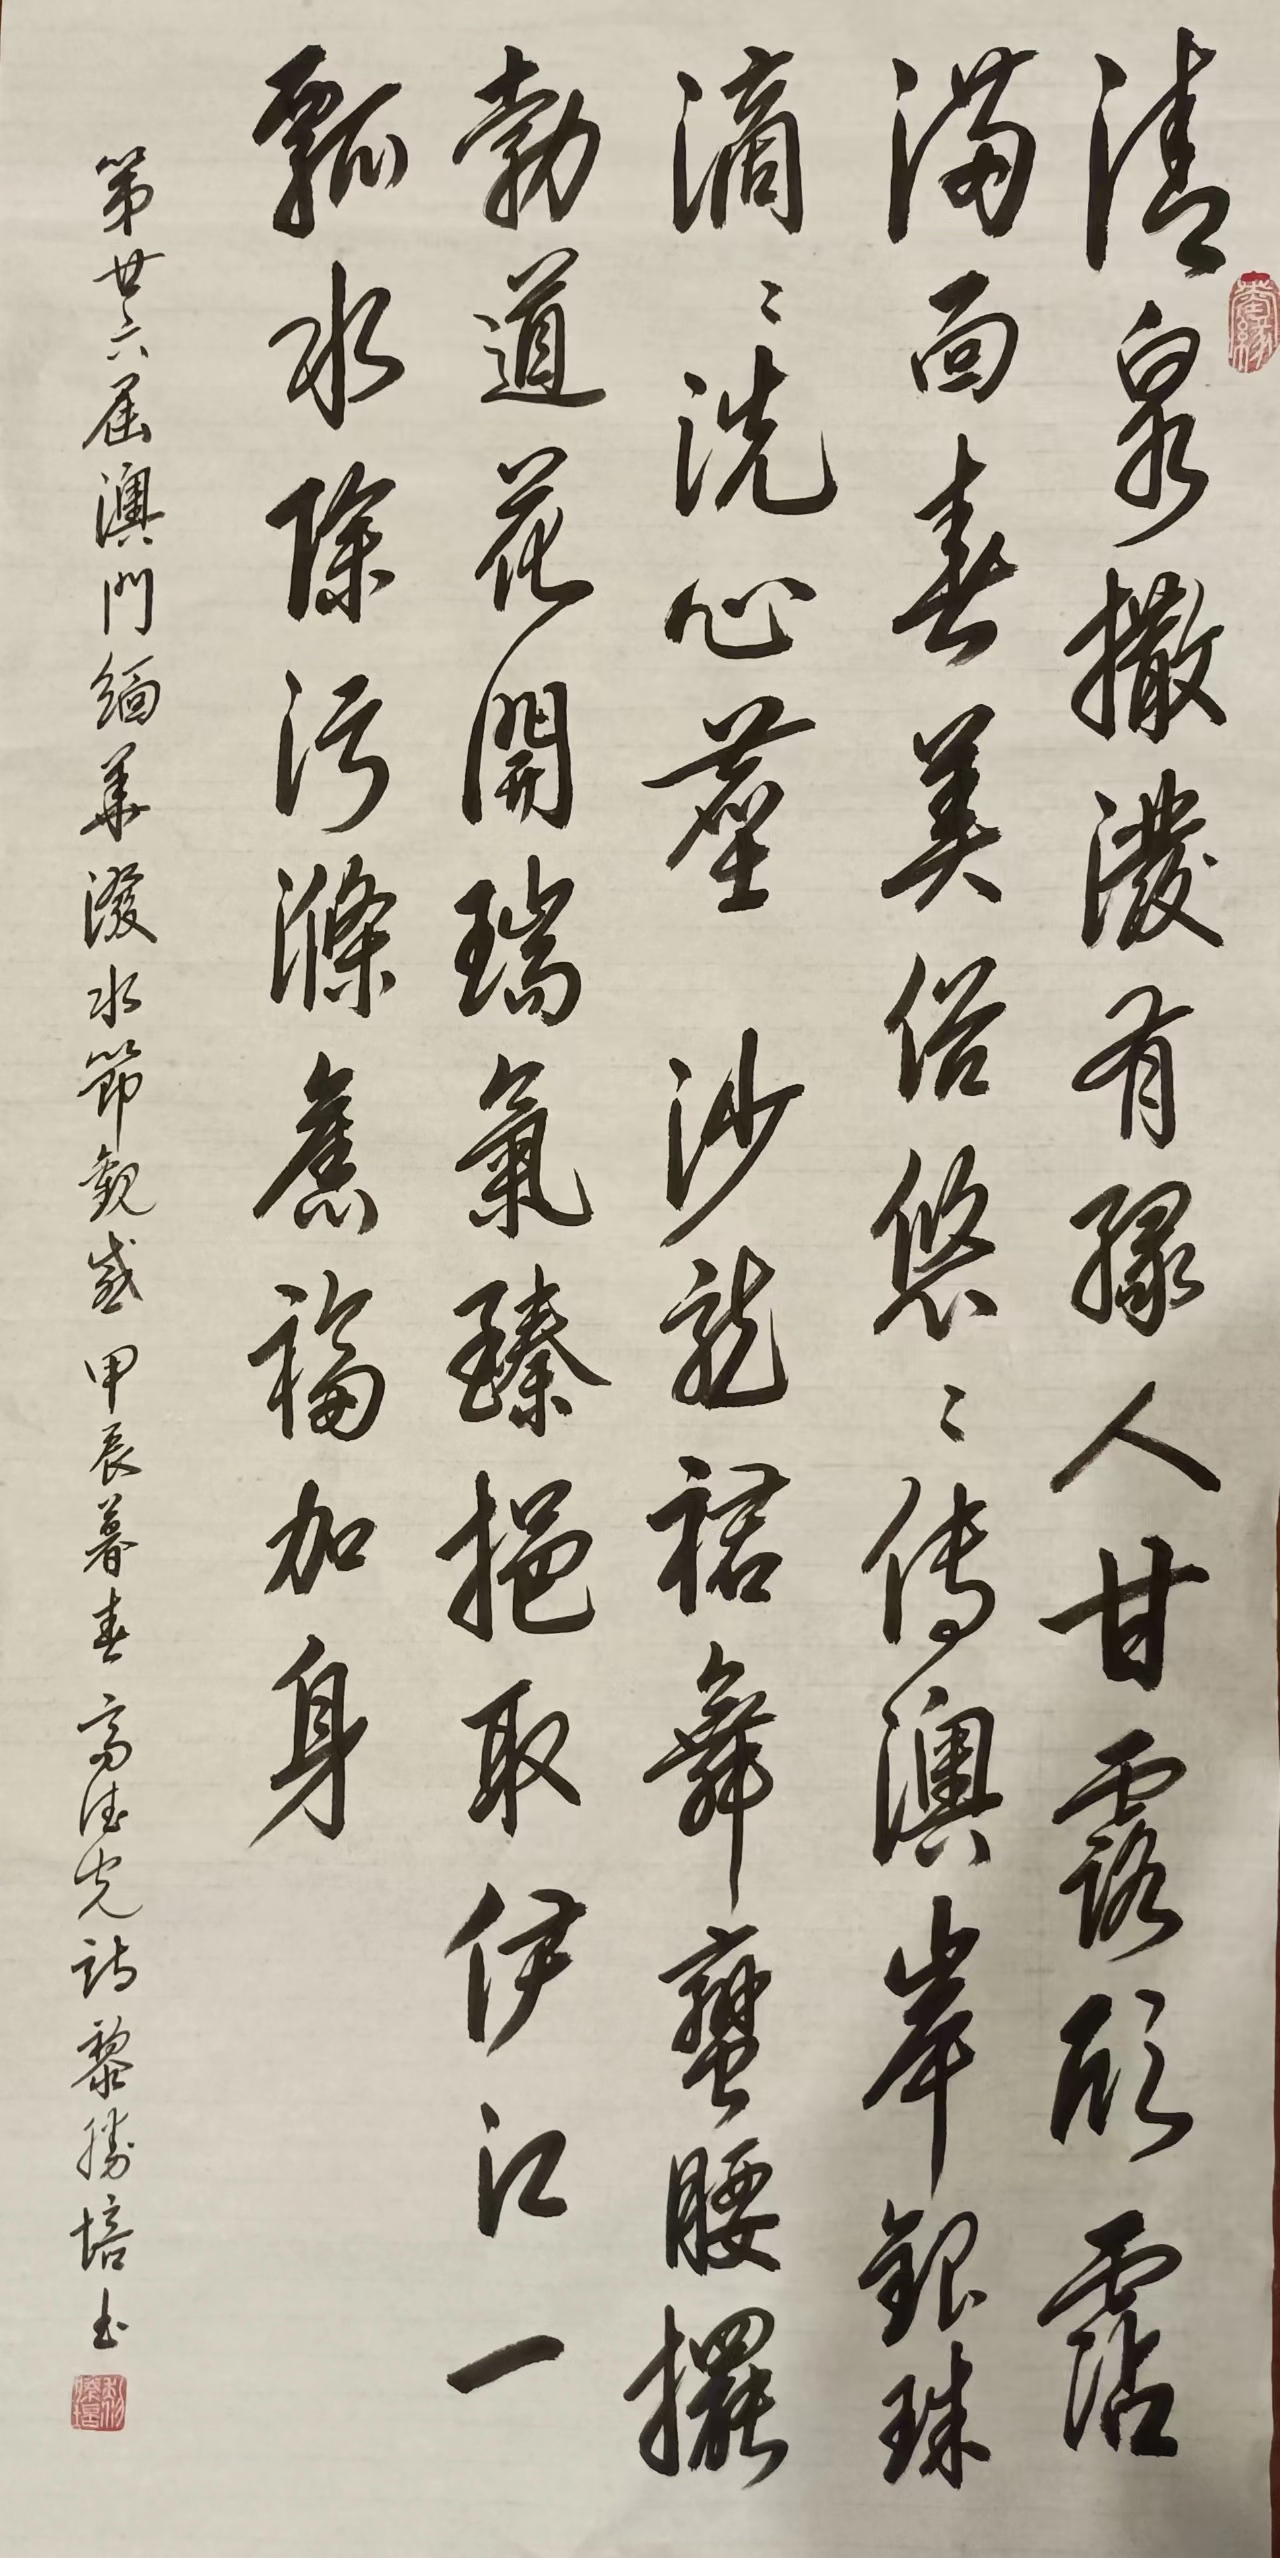 清泉撒潑有緣人甘露頎霑
滿面春美俗悠〻傳澳岸銀珠
滴〻洗心塵 沙龍裙舞蠻腰擺
勃道花開瑞氣臻挹取伊江一
瓢水除污滌舊福加身
第廿六屆澳門緬華潑水節觀感甲辰暮春高德光詩黎勝培書